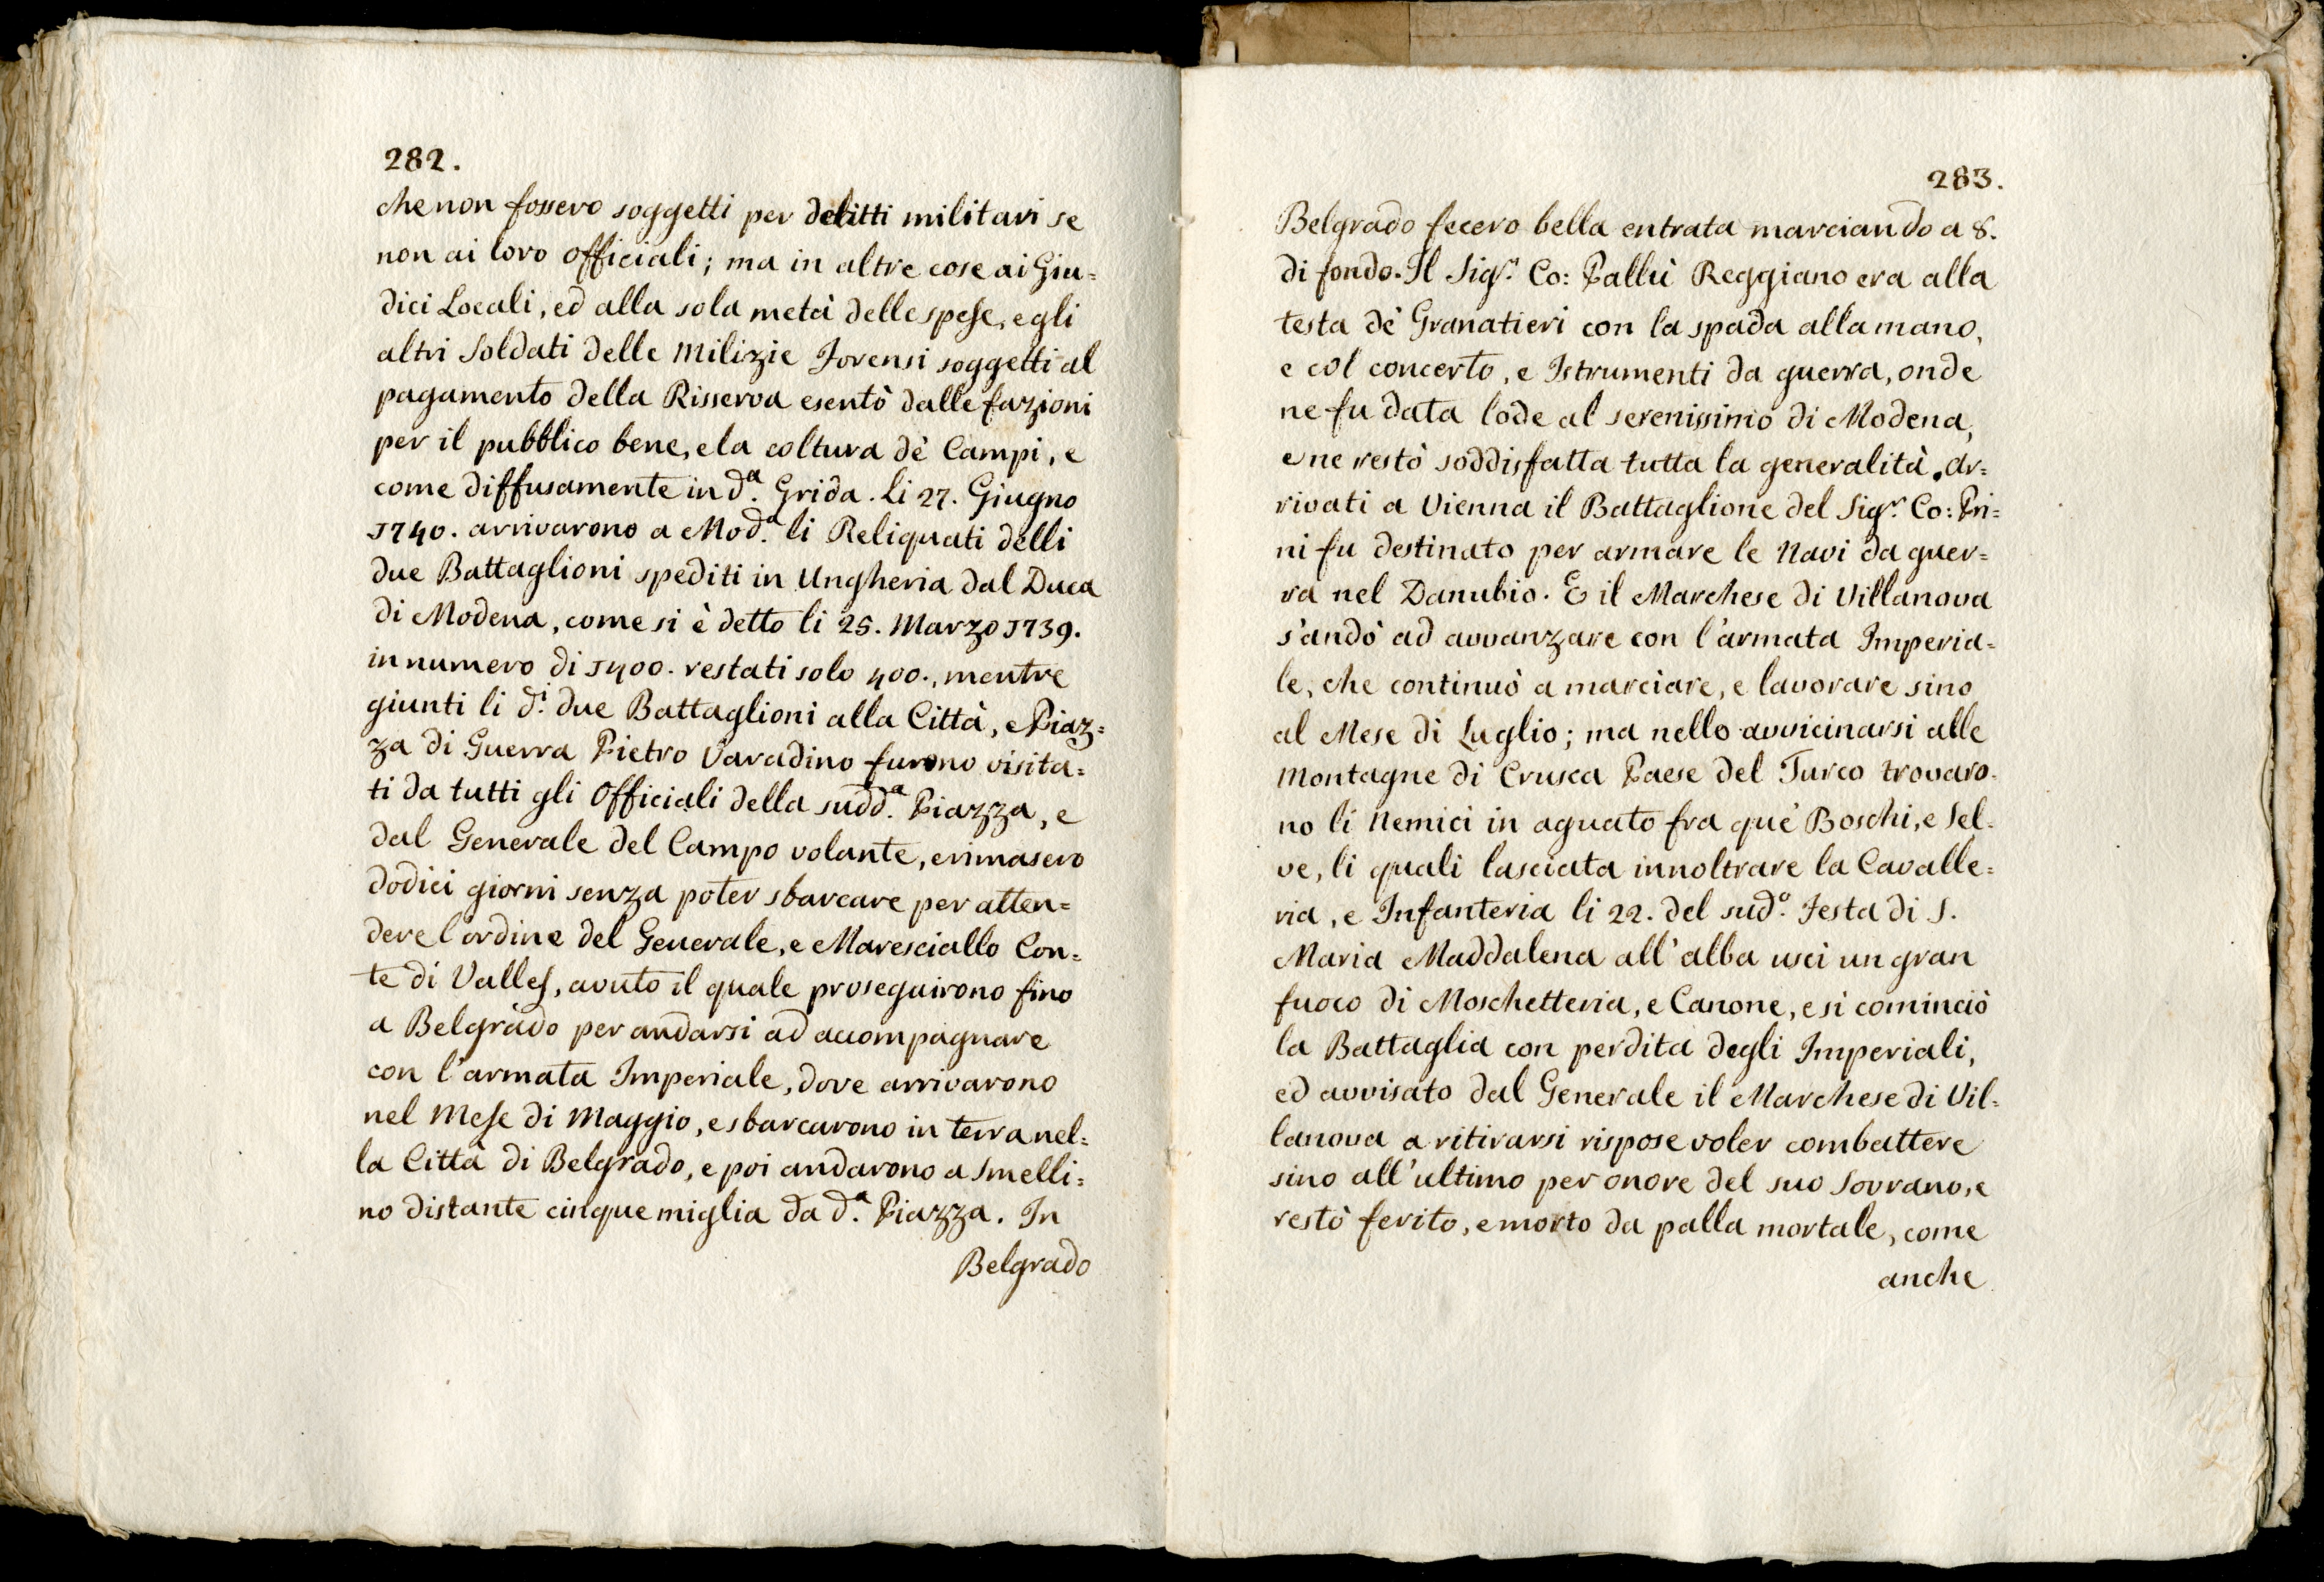 282.
che non fossero soggetti per delitti militari se
non ai loro officiali; ma in altre cose ai Giu=
dici Locali, ed alla sola metà delle spese, e gli
altri Soldati delle Milizie Forensi soggetti al
pagamento della Risserva esentò dalle fazioni
per il pubblico bene, e la coltura de' Campi, e
come diffusamente in d.ª Grida. Li 27. Giugno
1740. arrivarono a Mod.ª li Reliquati delli
due Battaglioni spediti in Ungheria dal Duca
di Modena, come si è detto li 25. Marzo 1739.
in numero di 1400. restati solo 400., mentre
giunti li d.i due Battaglioni alla Città, e Piaz=
za di Guerra Pietro Varadino furono visita=
ti da tutti gli Officiali della sudd.ª Piazza, e
dal Generale del Campo volante, e rimasero
dodici giorni senza poter sbarcare per atten=
dere l'ordine del Generale, e Maresciallo Con=
te di Valles, avuto il quale proseguirono fino
a Belgrado per andarsi ad accompagnare
con l'armata Imperiale, dove arrivarono
nel Mese di Maggio, e sbarcarono in terra nel=
la Città di Belgrado, e poi andarono a Smelli=
no distante cinque miglia da d.ª Piazza. In
Belgrado
283.
Belgrado fecero bella entrata marciando a 8.
di fondo. Il Sig.r Co: Pallù Reggiano era alla
testa de' Granatieri con la spada alla mano,
e col concerto, e Istrumenti da guerra, onde
ne fu data lode al serenissimo di Modena,
e ne restò soddisfatta tutta la generalità. Ar=
rivati a Vienna il Battaglione del Sig.r Co: Pri=
ni fu destinato per armare le Navi da guer=
ra nel Danubio. E il Marchese di Villanova
s'andò ad avvanzare con l'armata Imperia=
le, che continuò a marciare, e lavorare sino
al Mese di Luglio; ma nello avvicinarsi alle
Montagne di Crusca Paese del Turco trovaro=
no li Nemici in aguato fra que' Boschi, e Sel=
ve, li quali lasciata innoltrare la Cavalle=
ria, e Infanteria li 22. del sud.º Festa di S.
Maria Maddalena all'alba usci un gran
fuoco di Moschetteria, e Canone, e si cominciò
la Battaglia con perdita degli Imperiali,
ed avvisato dal Generale il Marchese di Vil=
lanova a ritirarsi rispose voler combattere
sino all'ultimo per onore del suo Sovrano, e
restò ferito, e morto da palla mortale, come
anche